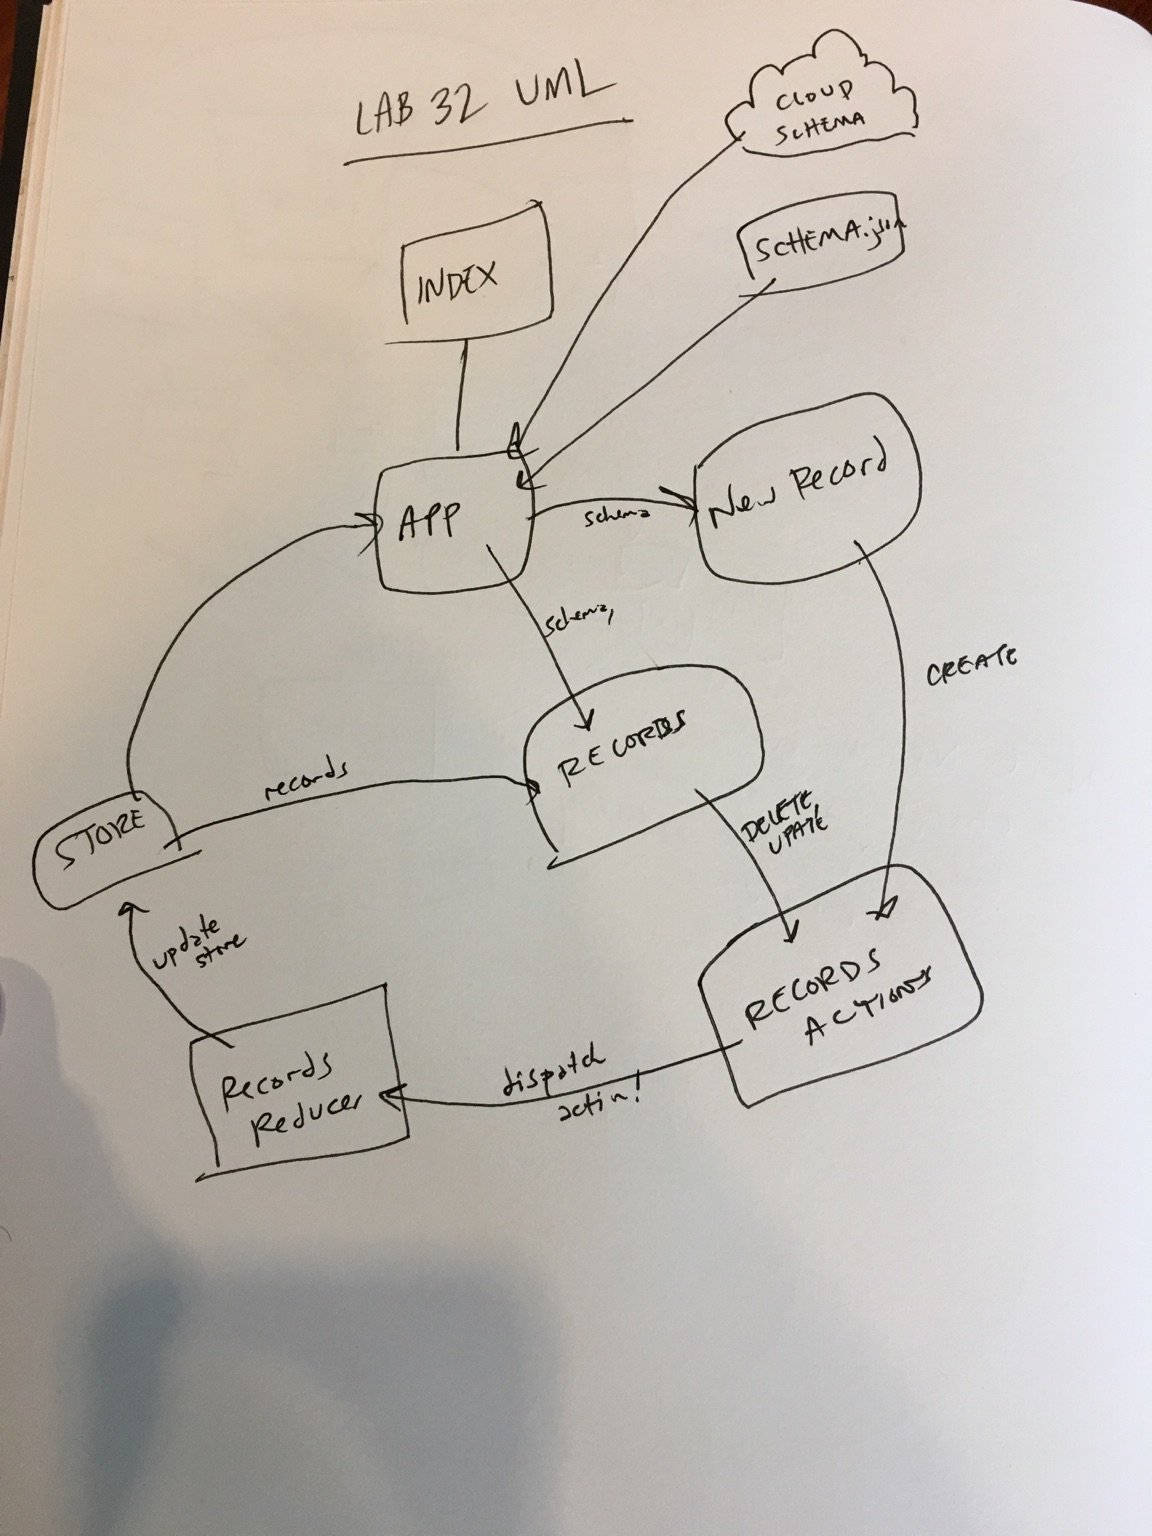 LAB 32 UML
CLOUD
SCHEMA
SCHEMA.json
INDEX
APP
schema
New Record
schema,
CREATE
RECORDS
records
STORE
DELETE,
UPATE
update
store
RECORDS
ACTIONS
dispatch
actin!
Records
Reducer